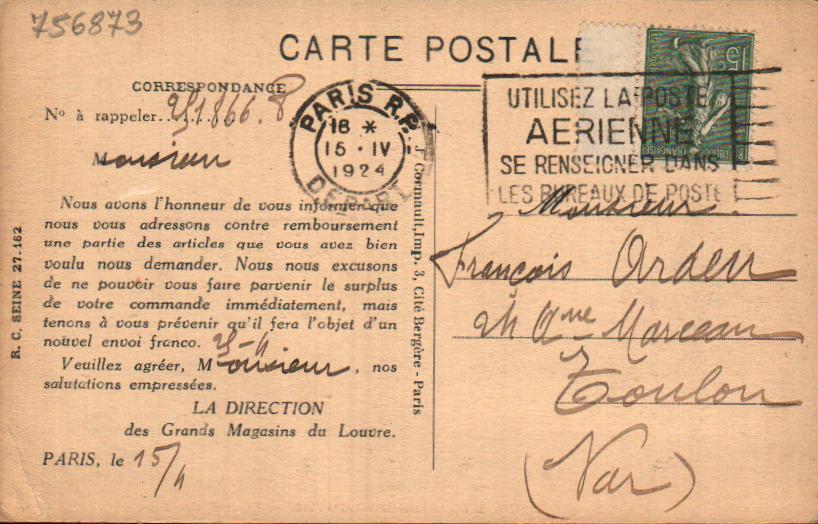 756873
CARTE POSTALE
CORRESPONDANCE
Nº à rappeler
Monsieur
Nous avons l'honneur de vous informer que
nous vous adressons contre remboursement
une partie des articles que vous avez bien
voulu nous demander. Nous nous excusons
de ne pouvoir vous faire parvenir le surplus
de votre commande immédiatement, mais
tenons à vous prévenir qu'il fera l'objet d'un
nouvel envoi franco.
Veuillez agréer, Monsieur, nos
salutations empressées.
LA DIRECTION
des Grands Magasins du Louvre.
PARIS, le 15/4
R. C. SEINE 27.162
J. Cormault, Imp. 3, Cité Bergère - Paris
PARIS R.P.
18 *
15 · IV
1924
DÉPART
UTILISEZ LA POSTE
AERIENNE
SE RENSEIGNER DANS
LES BUREAUX DE POSTE
15c
Monsieur
François Arden
24 Marceau
Toulon
(Var)